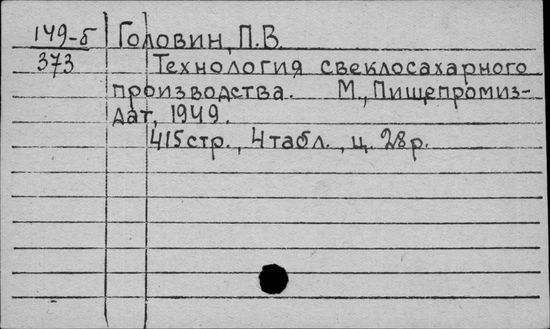 149-б Головин, П.В.
373 Технология свеклосахарного
производства. М., Пищепромиз-
дат, 1949.
415стр., 4табл., ц. 28р.